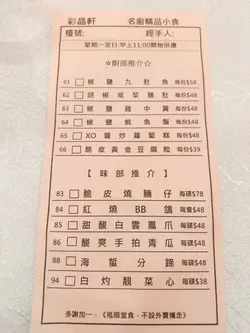 彩晶軒 名廚精品小食
檯號: 經手人:
星期一至日:早上11:00開始供應
☆廚部推介☆
61 □ 椒鹽九肚魚 每份$58
62 □ 胡椒咸菜豬肚 每份$48
63 □ 椒鹽雞中翼 每份$48
64 □ 椒鹽魷魚鬚 每份$48
65 □ XO醬炒蘿蔔糕 每份$48
66 □ 脆皮黃金豆腐粒 每份$39
【味部推介】
83 □ 脆皮燒腩仔 每碟$78
84 □ 紅燒BB鴿 每隻$48
85 □ 甜酸白雲鳳爪 每碟$48
86 □ 酸爽手拍青瓜 每碟$48
88 □ 海蜇分蹄 每碟$48
94 □ 白灼靚菜心 每碟$38
多謝加一．《祗限堂食，不設外賣攜走》